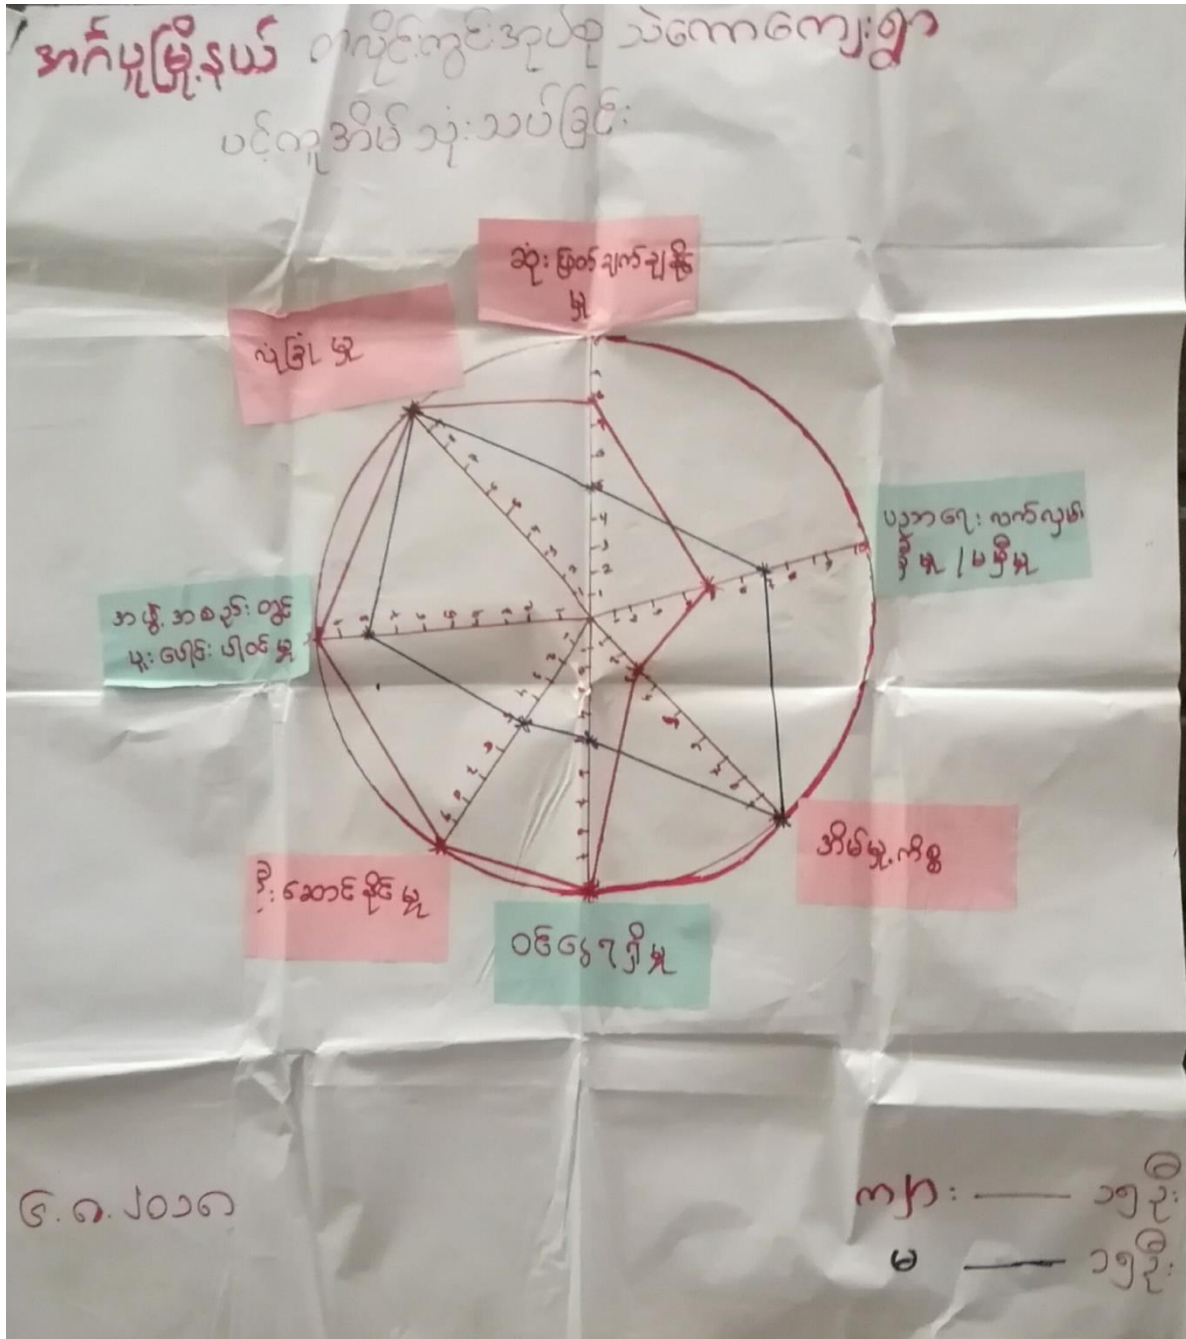 အင်္ဂပူမြို့နယ် တလိုင်းကွင်းအုပ်စု သဲကောကျေးရွာ
ပင့်ကူအိမ် သုံးသပ်ခြင်း
ဆုံးဖြတ်ချက်ချနိုင်
မှု
လုံခြုံမှု
ပညာရေး လက်လှမ်း
မှီမှု / မမှီမှု
အဖွဲ့အစည်းတွင်
ပူးပေါင်းပါဝင်မှု
ဦးဆောင်နိုင်မှု
ဝင်ငွေရရှိမှု
အိမ်မှု့ကိစ္စ
၆.၈.၂၀၁၈
ကျား — ၁၅ဦး
မ — ၁၅ဦး